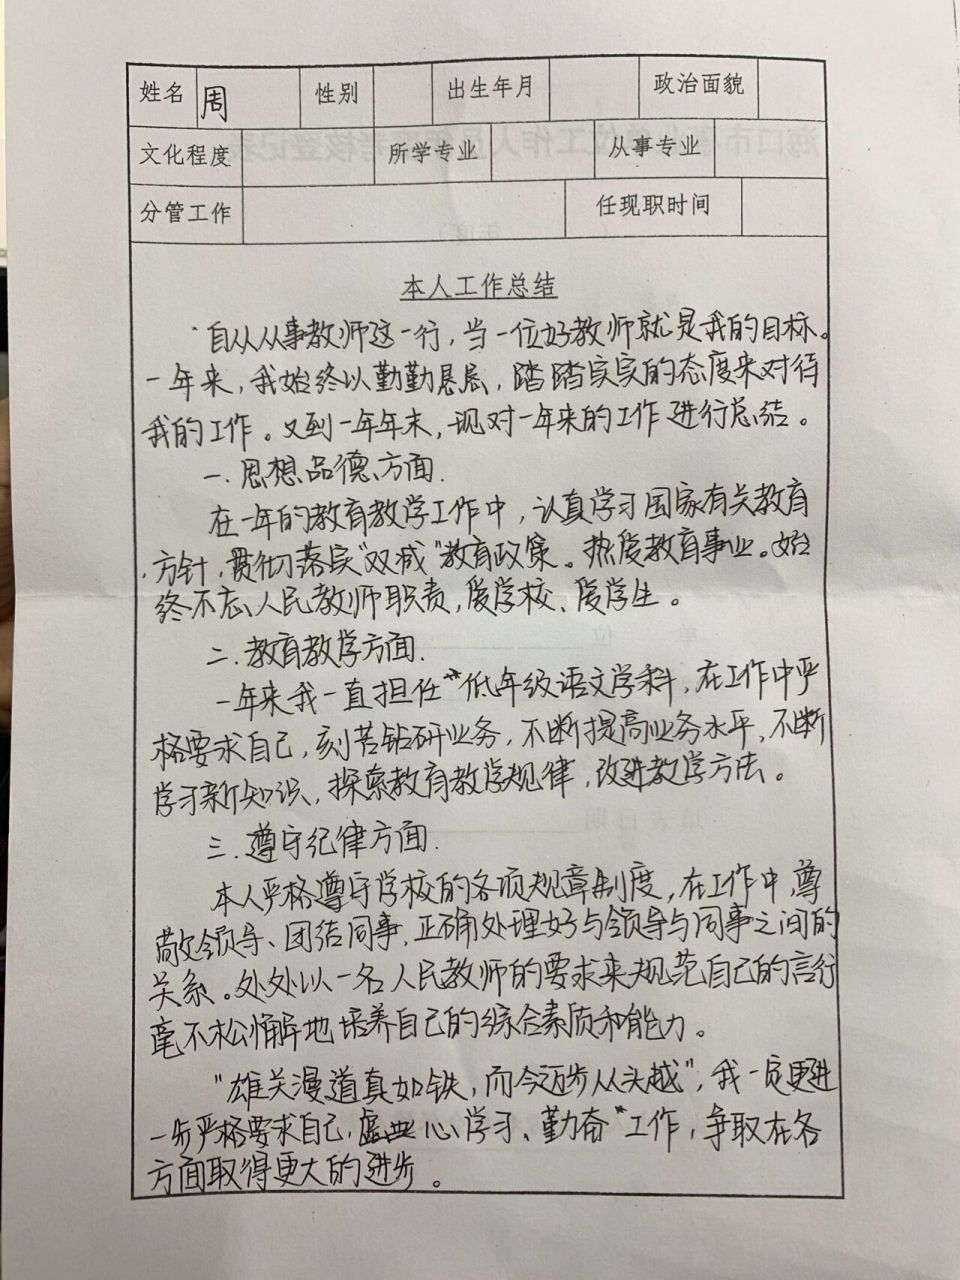 姓名 周 性别 出生年月 政治面貌
文化程度 所学专业 从事专业
分管工作 任现职时间
本人工作总结
自从从事教师这一行，当一位好教师就是我的目标。
一年来，我始终以勤勤恳恳，踏踏实实的态度来对待
我的工作。又到一年年末，现对一年来的工作进行总结。
一．思想品德方面．
在一年的教育教学工作中，认真学习国家有关教育
方针，贯彻落实“双减”教育政策。热爱教育事业。始
终不忘人民教师职责，爱学校、爱学生。
二．教育教学方面．
一年来我一直担任低年级语文学科，在工作中严
格要求自己，刻苦钻研业务，不断提高业务水平，不断
学习新知识，探索教育教学规律，改进教学方法。
三．遵守纪律方面．
本人严格遵守学校的各项规章制度，在工作中，尊
敬领导、团结同事，正确处理好与领导与同事之间的
关系。处处以一名人民教师的要求来规范自己的言行
毫不松懈地培养自己的综合素质和能力。
“雄关漫道真如铁，而今迈步从头越”，我一定更进
一步严格要求自己，虚心学习、勤奋工作，争取在各
方面取得更大的进步。